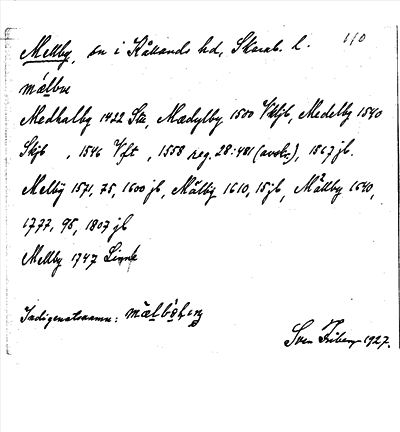 Mellby, sn i Kållands hd, Skarab. l. 110
mälbu
Medhalby 1422 Stu, Mædylby 1500 Vkljb, Medelby 1540
Skjb , 1546 Vft , 1558 reg. 28:481 (avskr.), 1567 jb.
Melby 1571, 75, 1600 jb, Målby 1610, 15 jb, Mållby 1640,
1777, 95, 1807 jb
Mellby 1747 Linné
Indigenatsnamn:
Sven Friberg 1927.